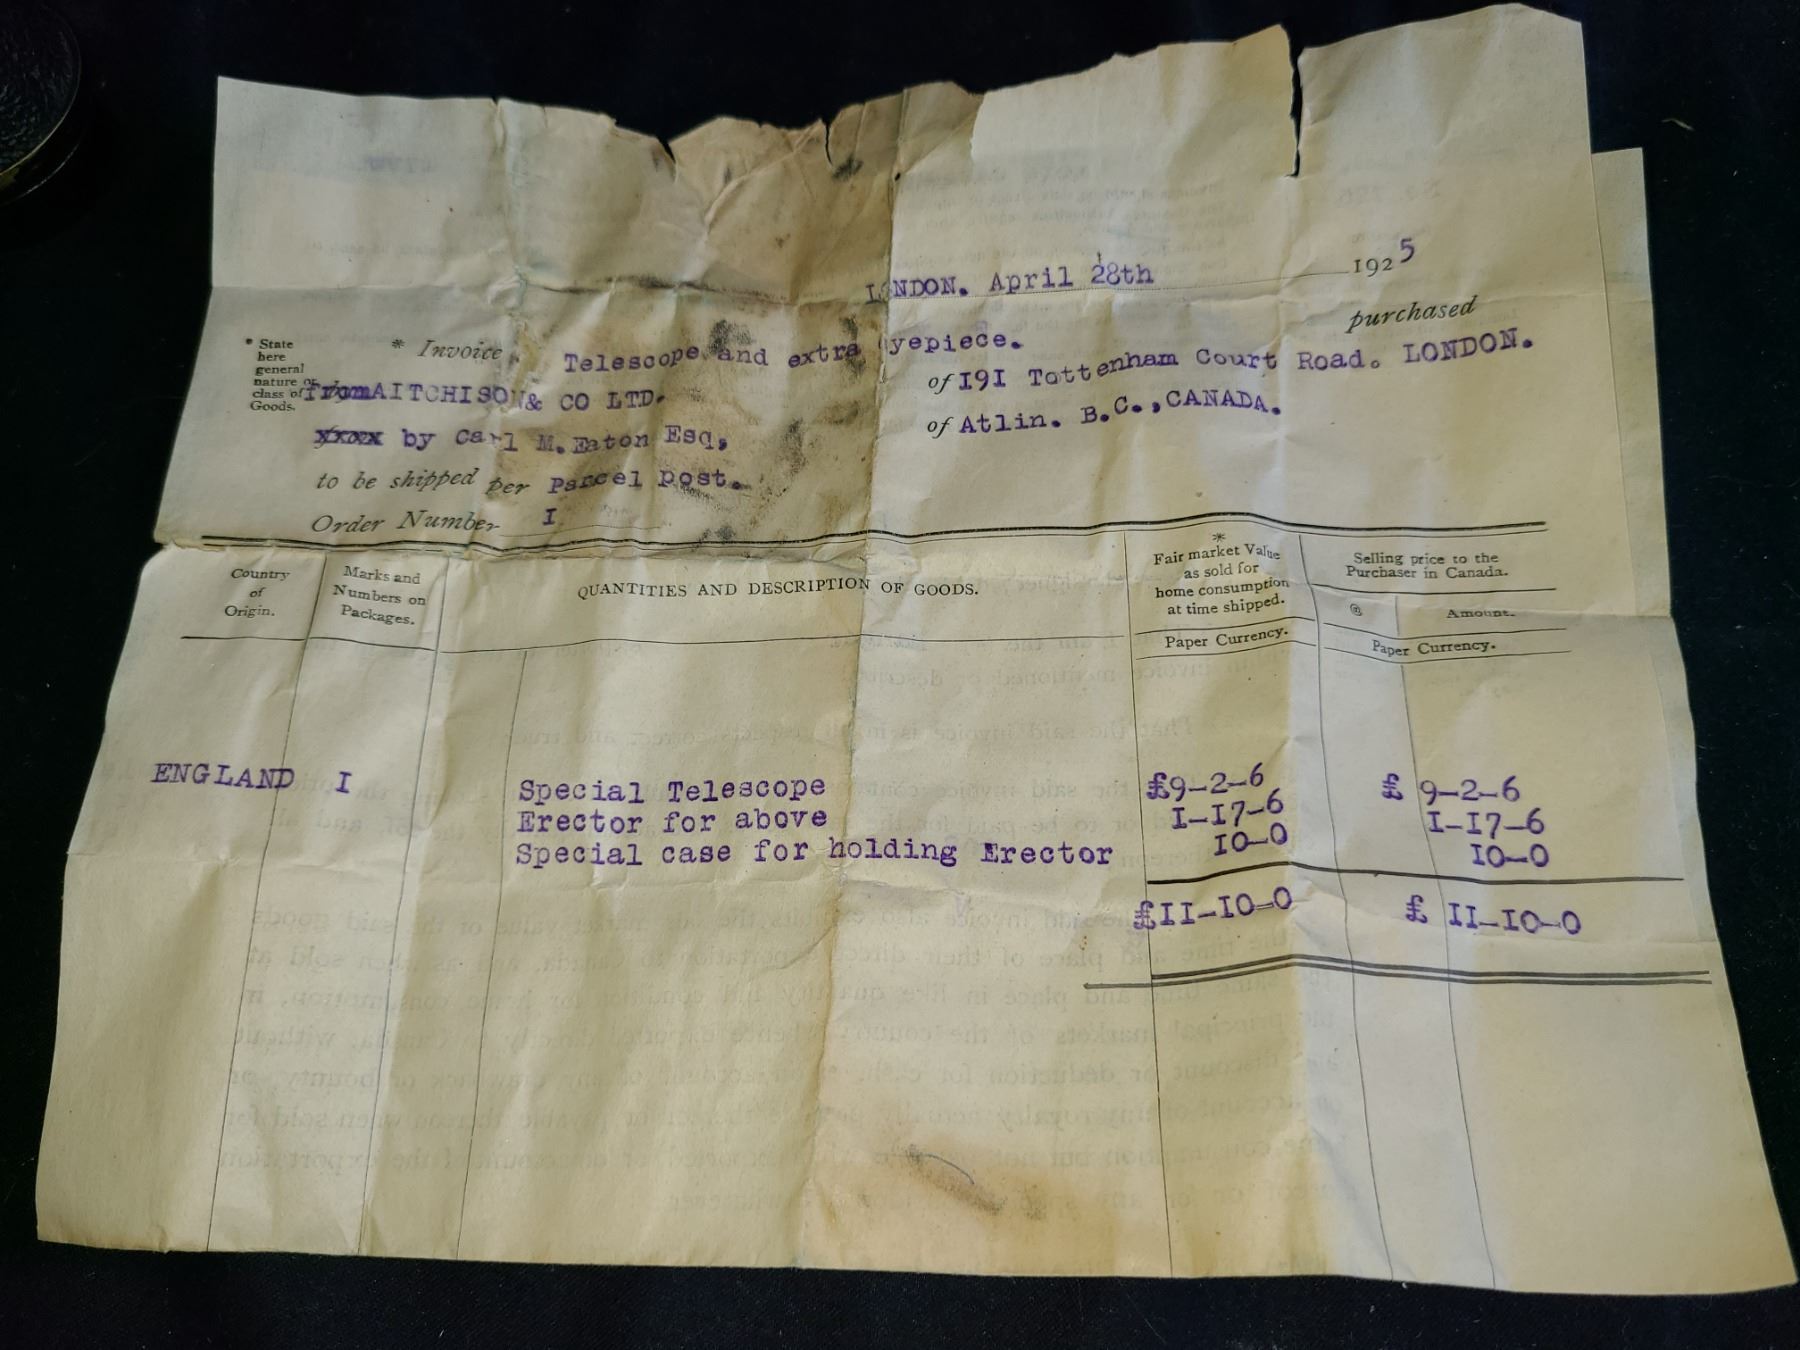 LONDON. April 28th 1925
* Invoice. Telescope and extra yepiece. purchased
* State
here
general
nature or
class of
Goods.
from AITCHISON & CO LTD. of 191 Tottenham Court Road. LONDON.
xxxx by Carl M. Eaton Esq, of Atlin. B.C., CANADA.
to be shipped per Parcel post.
Order Number I
Country
of
Origin.
Marks and
Numbers on
Packages.
QUANTITIES AND DESCRIPTION OF GOODS.
*
Fair market Value
as sold for
home consumption
at time shipped.
Paper Currency.
Selling price to the
Purchaser in Canada.
@ Amount.
Paper Currency.
ENGLAND I Special Telescope £9-2-6 £ 9-2-6
Erector for above I-I7-6 I-I7-6
Special case for holding Erector IO-0 IO-0
£II-IO-0 £ II-IO-0